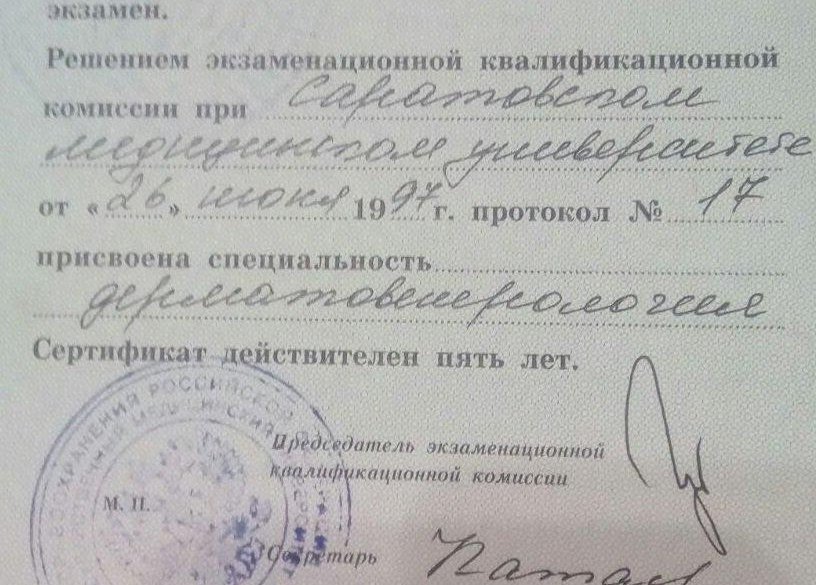 экзамен.
Решением экзаменационной квалификационной
комиссии при Саратовском
медицинском университете
от «26» июня 1997 г. протокол № 17
присвоена специальность
дерматовенерология
Сертификат действителен пять лет.
Председатель экзаменационной
квалификационной комиссии
М. П.
Секретарь
РОССИЙСКОЙ
МЕДИЦИНСКИЙ